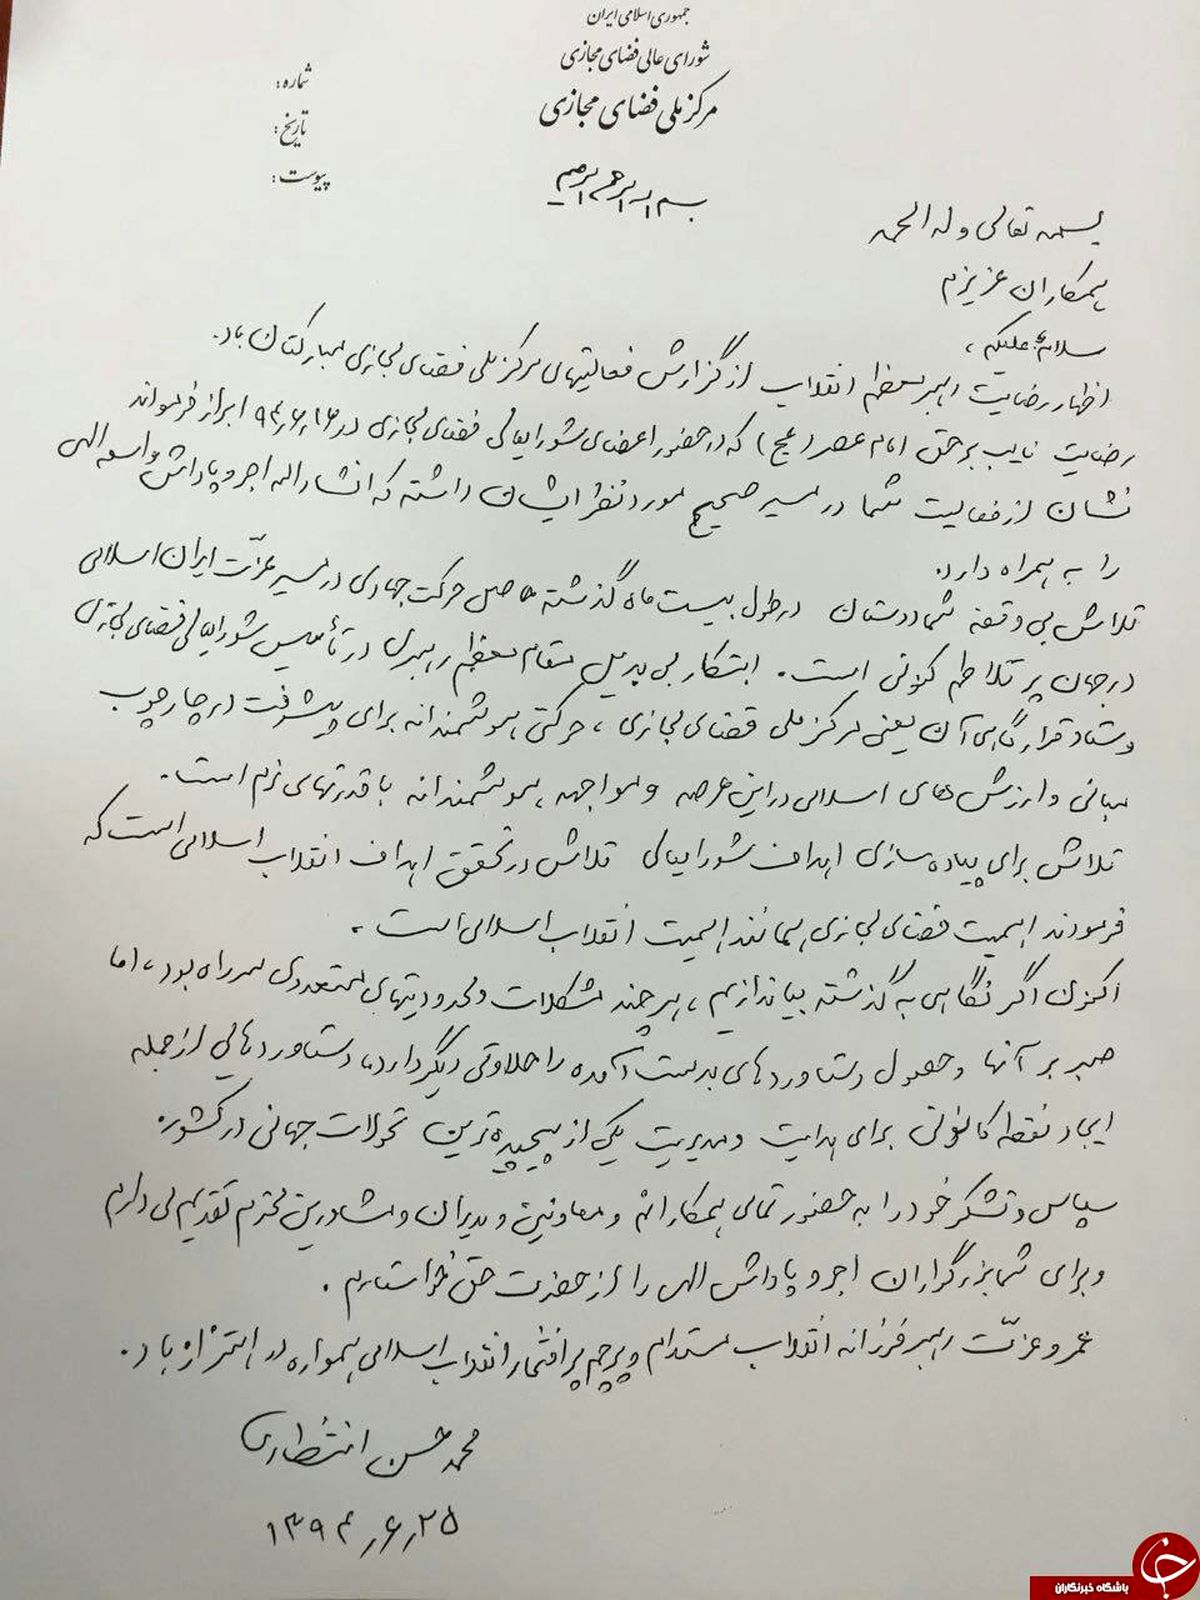 جمهوری اسلامی ایران
شورای عالی فضای مجازی
مرکز ملی فضای مجازی
شماره:
تاریخ:
پیوست:
بسم الله الرحمن الرحیم
بسمه تعالی وله الحمد
همکاران عزیزم
سلام علیکم،
اظهار رضایت رهبر معظم انقلاب از گزارش فعالیتهای مرکز ملی فضای مجازی مبارکتان باد.
رضایت نایب برحق امام عصر (عج) که در حضور اعضای شورایعالی فضای مجازی در ۹۴٫۶٫۱۶ ابراز فرمودند
نشان از فعالیت شما در مسیر صحیح مورد نظر ایشان داشته که انشاءاله اجر و پاداش واسعه الهی
را به همراه دارد.
تلاش بی وقفه شما دوستان در طول بیست ماه گذشته حرکت جهادی در مسیر عزّت ایران اسلامی
در جهان پر تلاطم کنونی است. ابتکار بی بدیل مقام معظم رهبری در تأسیس شورایعالی فضای مجازی
و ستاد قرارگاهی آن یعنی مرکز ملی فضای مجازی، حرکتی هوشمندانه برای پیشرفت در چارچوب
مبانی و ارزش های اسلامی در این عرصه و مواجهه هوشمندانه با قدرتهای نرم است.
تلاش برای پیاده سازی اهداف شورایعالی تلاش در تحقق اهداف انقلاب اسلامی است که
فرمودند اهمیت فضای مجازی همانند اهمیت انقلاب اسلامی است.
اکنون اگر نگاهی به گذشته بیاندازیم، هر چند مشکلات و محدودیتهای متعددی همراه بود، اما
صبر بر آنها و حصول دستاوردهای بدست آمده را حلاوتی دیگر دارد، دستاوردهایی از جمله
ایجاد نقطه کانونی برای هدایت و مدیریت یکی از پیچیده ترین تحولات جهانی در کشور.
سپاس و تشکر خود را به حضور تمامی همکارانم و معاونین و مدیران و مشاورین محترم تقدیم می دارم
و برای شما بزرگواران اجر و پاداش الهی را از حضرت حق خواستارم.
عمر و عزّت رهبر فرزانه انقلاب مستدام و پرچم پر افتخار انقلاب اسلامی همواره در اهتزاز باد.
محمد حسن انتظاری
۱۳۹۴٫۶٫۲۵
باشگاه خبرنگاران